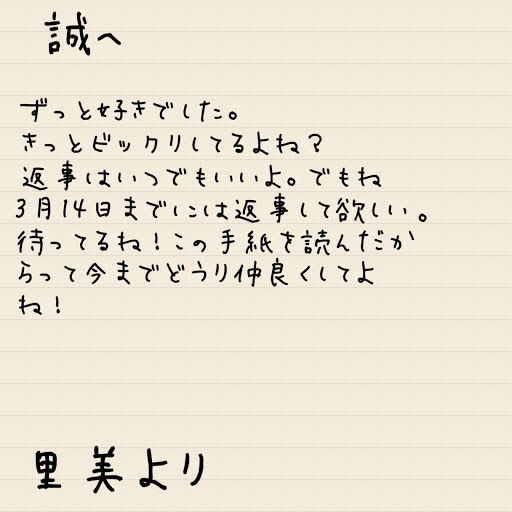 誠へ
ずっと好きでした。
きっとビックリしてるよね？
返事はいつでもいいよ。でもね
3月14日までには返事して欲しい。
待ってるね！この手紙を読んだか
らって今までどうり仲良くしてよ
ね！
里美より